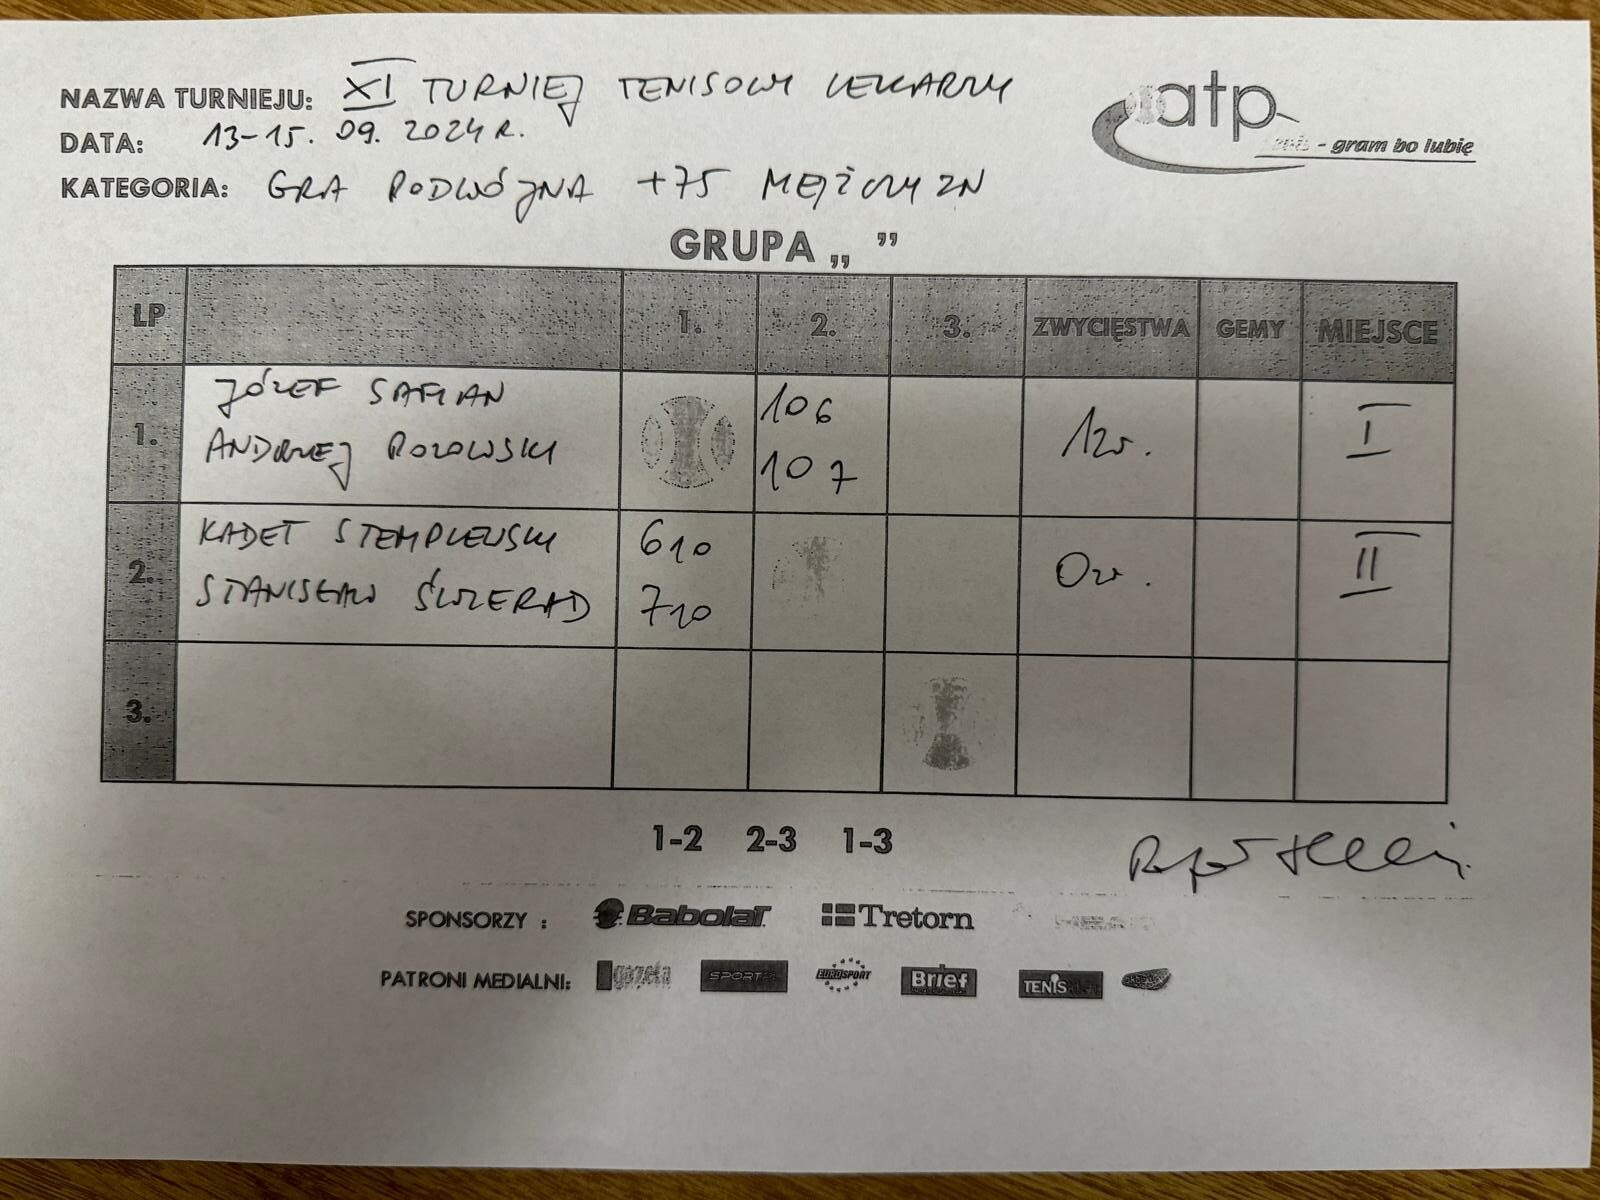 NAZWA TURNIEJU: XI TURNIEJ TENISOWY LEKARZY
DATA: 13-15. 09. 2024 R.
KATEGORIA: GRA PODWÓJNA +75 MĘŻCZYZN
atp
- gram bo lubię
GRUPA „ ”
LP 1. 2. 3. ZWYCIĘSTWA GEMY MIEJSCE
1. JÓZEF SAFIAN 106 1zw. I
ANDRZEJ 107
2. KADET STEMPLEWSKI 610 0zw. II
STANISŁAW ŚWIERAD 710
3.
1-2 2-3 1-3
SPONSORZY : Babolat Tretorn HEAD
PATRONI MEDIALNI: gazeta SPORT EUROSPORT Brief TENIS